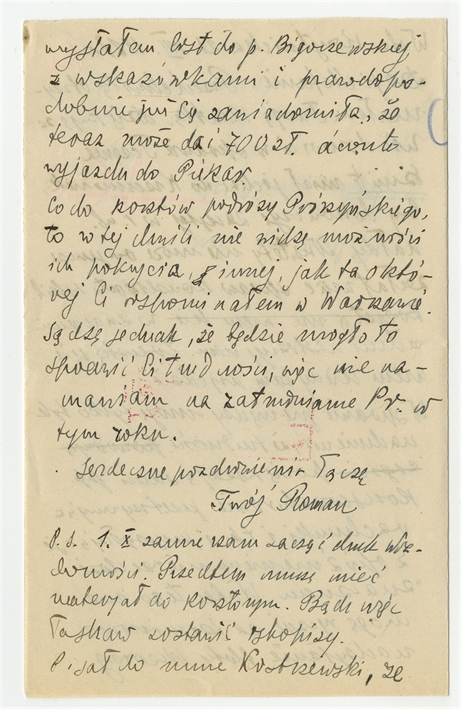 wysłałem list do p. Bigoszewskiej
z wskazówkami i prawdopo-
dobnie już Cię zawiadomiła, że
teraz może dać 700 zł. à conto
wyjazdu do Piekar.
Co do kosztów podróży Prószyńskiego,
to w tej chwili nie widzę możności
ich pokrycia, innej, jak ta októ-
rej Ci wspominałem w Warszawie.
Sądzę jednak, że będzie mogło to
sprawić Ci trudności, więc nie na-
mawiam na zatrudnianie Pr. w
tym roku.
Serdeczne pozdrowienia łączę
Twój Roman
P.S. 1. X zamierzam zacząć druk Wia-
domości. Przedtem muszę mieć
materjał do kosztorys. Bądź więc
łaskaw zostawić rękopisy.
Pisał do mnie Kostrzewski, że